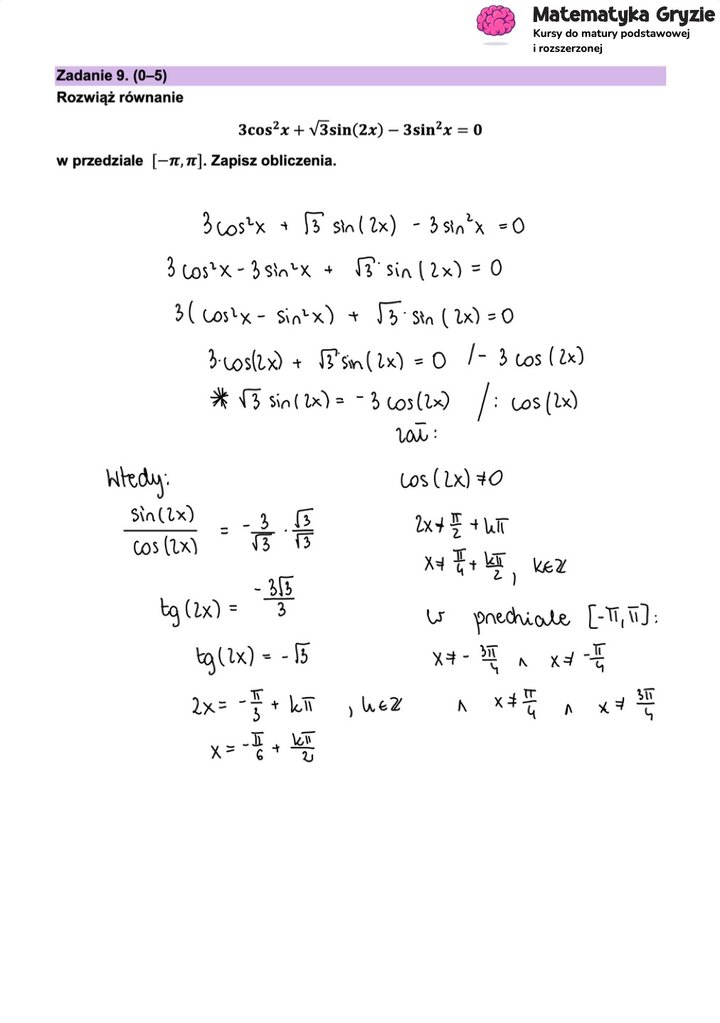 Matematyka Gryzie
Kursy do matury podstawowej
i rozszerzonej
Zadanie 9. (0–5)
Rozwiąż równanie
3cos²x + √3sin(2x) − 3sin²x = 0
w przedziale [−π, π]. Zapisz obliczenia.
3cos²x + √3 sin(2x) - 3 sin²x = 0
3 cos²x - 3 sin²x + √3 · sin(2x) = 0
3(cos²x - sin²x) + √3 · sin(2x) = 0
3·cos(2x) + √3 sin(2x) = 0 /- 3 cos(2x)
* √3 sin(2x) = - 3 cos(2x) /: cos(2x)
zał:
Wtedy:
sin(2x)/cos(2x) = - 3/√3 · √3/√3
tg(2x) = - 3√3/3
tg(2x) = - √3
2x = - π/3 + kπ , k∈Z
x = - π/6 + kπ/2
cos(2x) ≠ 0
2x ≠ π/2 + kπ
x ≠ π/4 + kπ/2 , k∈Z
w przedziale [-π, π]:
x ≠ - 3π/4 ∧ x ≠ - π/4
∧ x ≠ π/4 ∧ x ≠ 3π/4